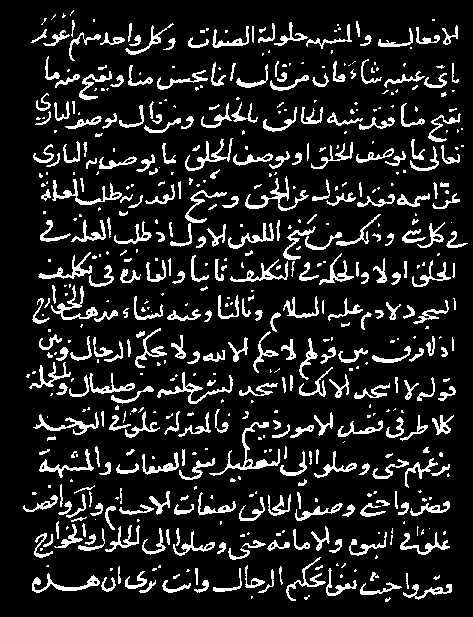 الافعال والمشبهة حلولية الصفات وكل واحد منهم اعور
باي عينيه شاء فان من قال انما يحسن منا ويقبح منه ما
يقبح منا فقد شبه الخالق بالخلق ومن قال يوصف الباري
تعالى بما يوصف الخلق او يوصف الخلق بما يوصف به الباري
عز اسمه فقد اعتزل عن الحق وسنخ القدرية طلب العلة
في كل شي وذلك من سنخ اللعين الاول اذ طلب العلة في
الخلق اولا والحكمة في التكليف ثانيا والفايدة في تكليف
السجود لادم عليه السلام وثالثا وعنه نشاء مذهب الخوارج
اذ لا فرق بين قولهم لا حكم الا لله ولا يحكم الرجال وبين
قوله لا اسجد الا لك ااسجد لبشر خلقته من صلصال وبالجملة
كلا طرفي قصد الامور ذميم فالمعتزلة غلوا في التوحيد
بزعمهم حتى وصلوا الى التعطيل بنفي الصفات والمشبهة
قصروا حتى وصفوا الخالق بصفات الاجسام والروافض
غلوا في النبوة والامامة حتى وصلوا الى الحلول والخوارج
قصروا حيث نفوا تحكيم الرجال وانت ترى ان هذه